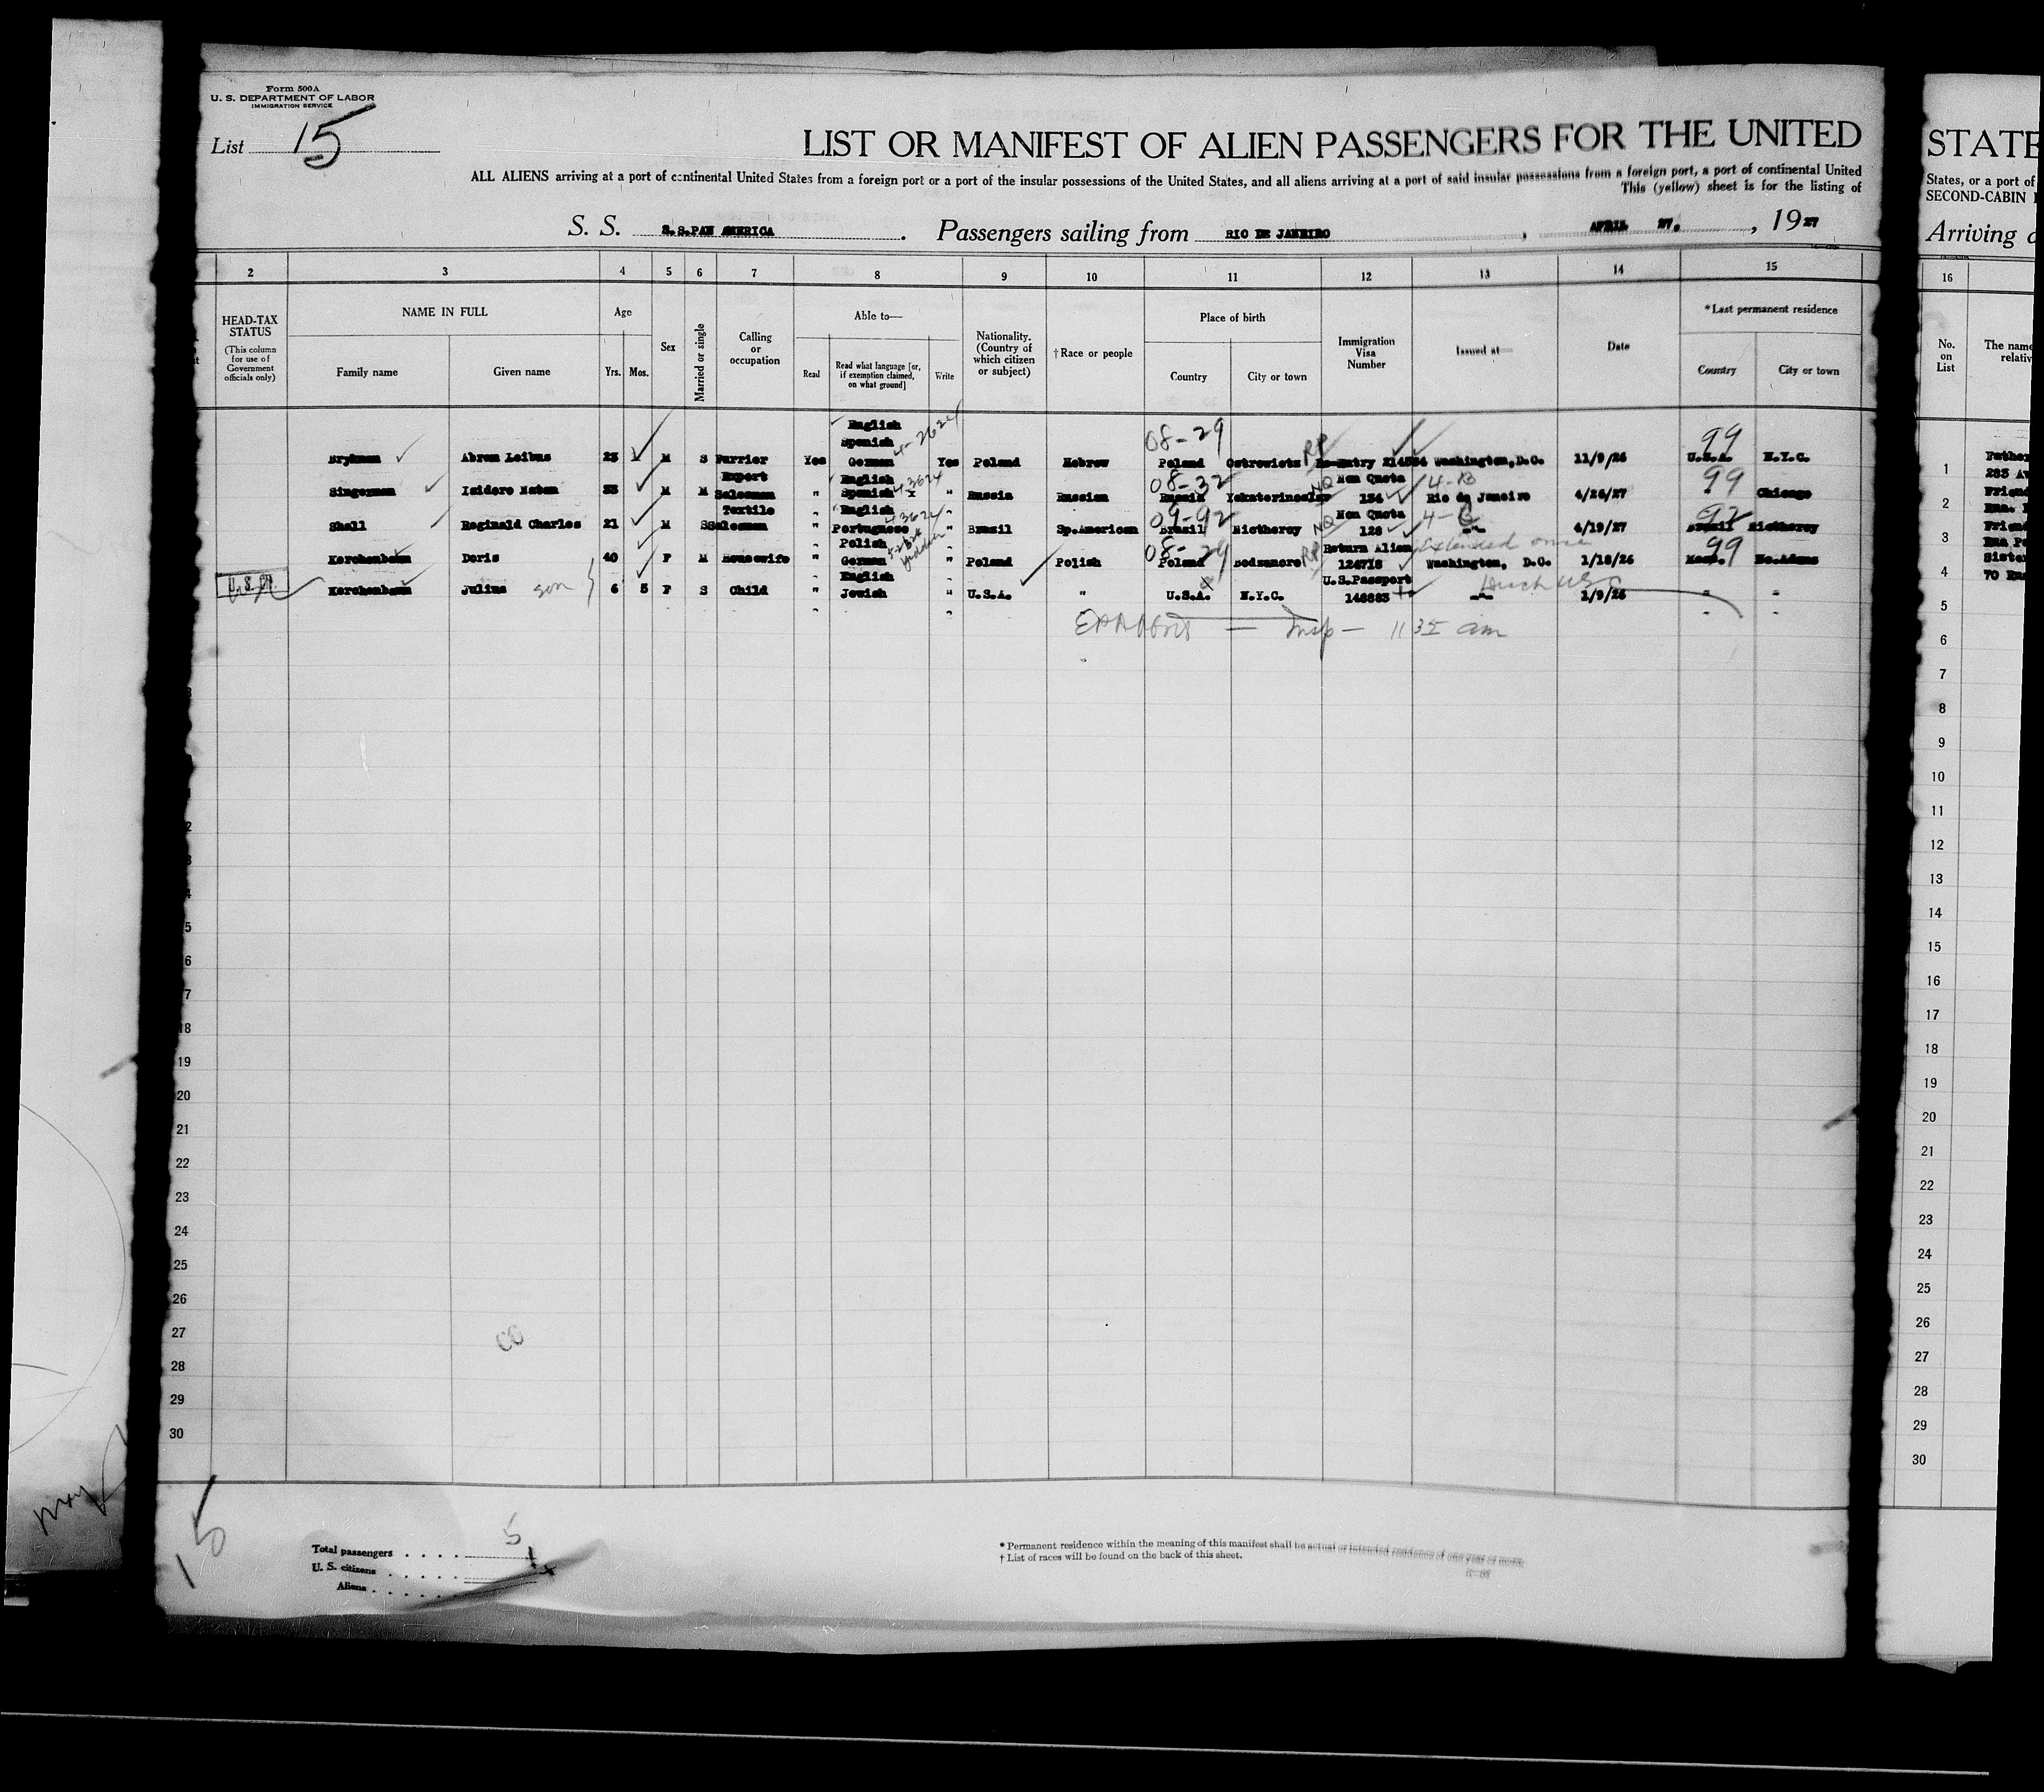 Form 500A
U. S. DEPARTMENT OF LABOR
IMMIGRATION SERVICE
List 15
LIST OR MANIFEST OF ALIEN PASSENGERS FOR THE UNITED
ALL ALIENS arriving at a port of continental United States from a foreign port or a port of the insular possessions of the United States, and all aliens arriving at a port of said insular possessions from a foreign port, a port of continental United
This (yellow) sheet is for the listing of
S. S. S.S.PAN AMERICA. Passengers sailing from RIO DE JANEIRO, APRIL 27., 1927
STATE
States, or a port of
SECOND-CABIN
Arriving
2 3 4 5 6 7 8 9 10 11 12 13 14 15 16
HEAD-TAX STATUS (This column for use of Government officials only)
NAME IN FULL
Family name Given name
Age
Yrs. Mos.
Sex
Married or single
Calling or occupation
Able to—
Read
Read what language [or, if exemption claimed, on what ground]
Write
Nationality. (Country of which citizen or subject)
†Race or people
Place of birth
Country City or town
Immigration Visa Number
Issued at—
Date
*Last permanent residence
Country City or town
No. on List
The name
relativ
English
Spanish 08-29 RP 99
Abram Leibus 23 M S Furrier Yes German Yes Poland Hebrew Poland Ostrowietz Re-Entry Washington,D.C. 11/9/26 U.S.A. N.Y.C. 1 Father
Export English 08-32 NQ Non Quota 4-B 99 283 Av
Singerman Isidore Natan 33 M M Salesman " Spanish " Russia Russian Russia 134 Rio de Janeiro 4/26/27 " Chicago 2 Friend
Textile English 09-92 NQ Non Quota 92 Rua.
Shall Reginald Charles 21 M S Salesman " Portuguese " Brasil Sp.American Brasil Nictheroy 128 4/19/27 Brasil Nictheroy 3 Friend
Polish 08- RP Return Alien Extended once 99
Kerchenbaum Doris 40 F M Housewife " German Yiddish " Poland Polish Poland 124718 Washington, D.C. 1/18/26 Mass. No.Adams 4 Sister
English U.S.Passport 70 Rua
U.S.Cit. Kerchenbaum Julius son 6 5 F S Child " Jewish " U.S.A. " U.S.A. N.Y.C. 148883 1/9/26 " " 5
11 35 am
6
7
8
9
10
11
12
13
14
15
16
17
18 18
19 19
20 20
21 21
22 22
23 23
24 24
25 25
26 26
27 27
28 28
29 29
30 30
May
Total passengers 5
U. S. citizens 1
Aliens 4
* Permanent residence within the meaning of this manifest shall be actual or intended residence of one year or more.
† List of races will be found on the back of this sheet.